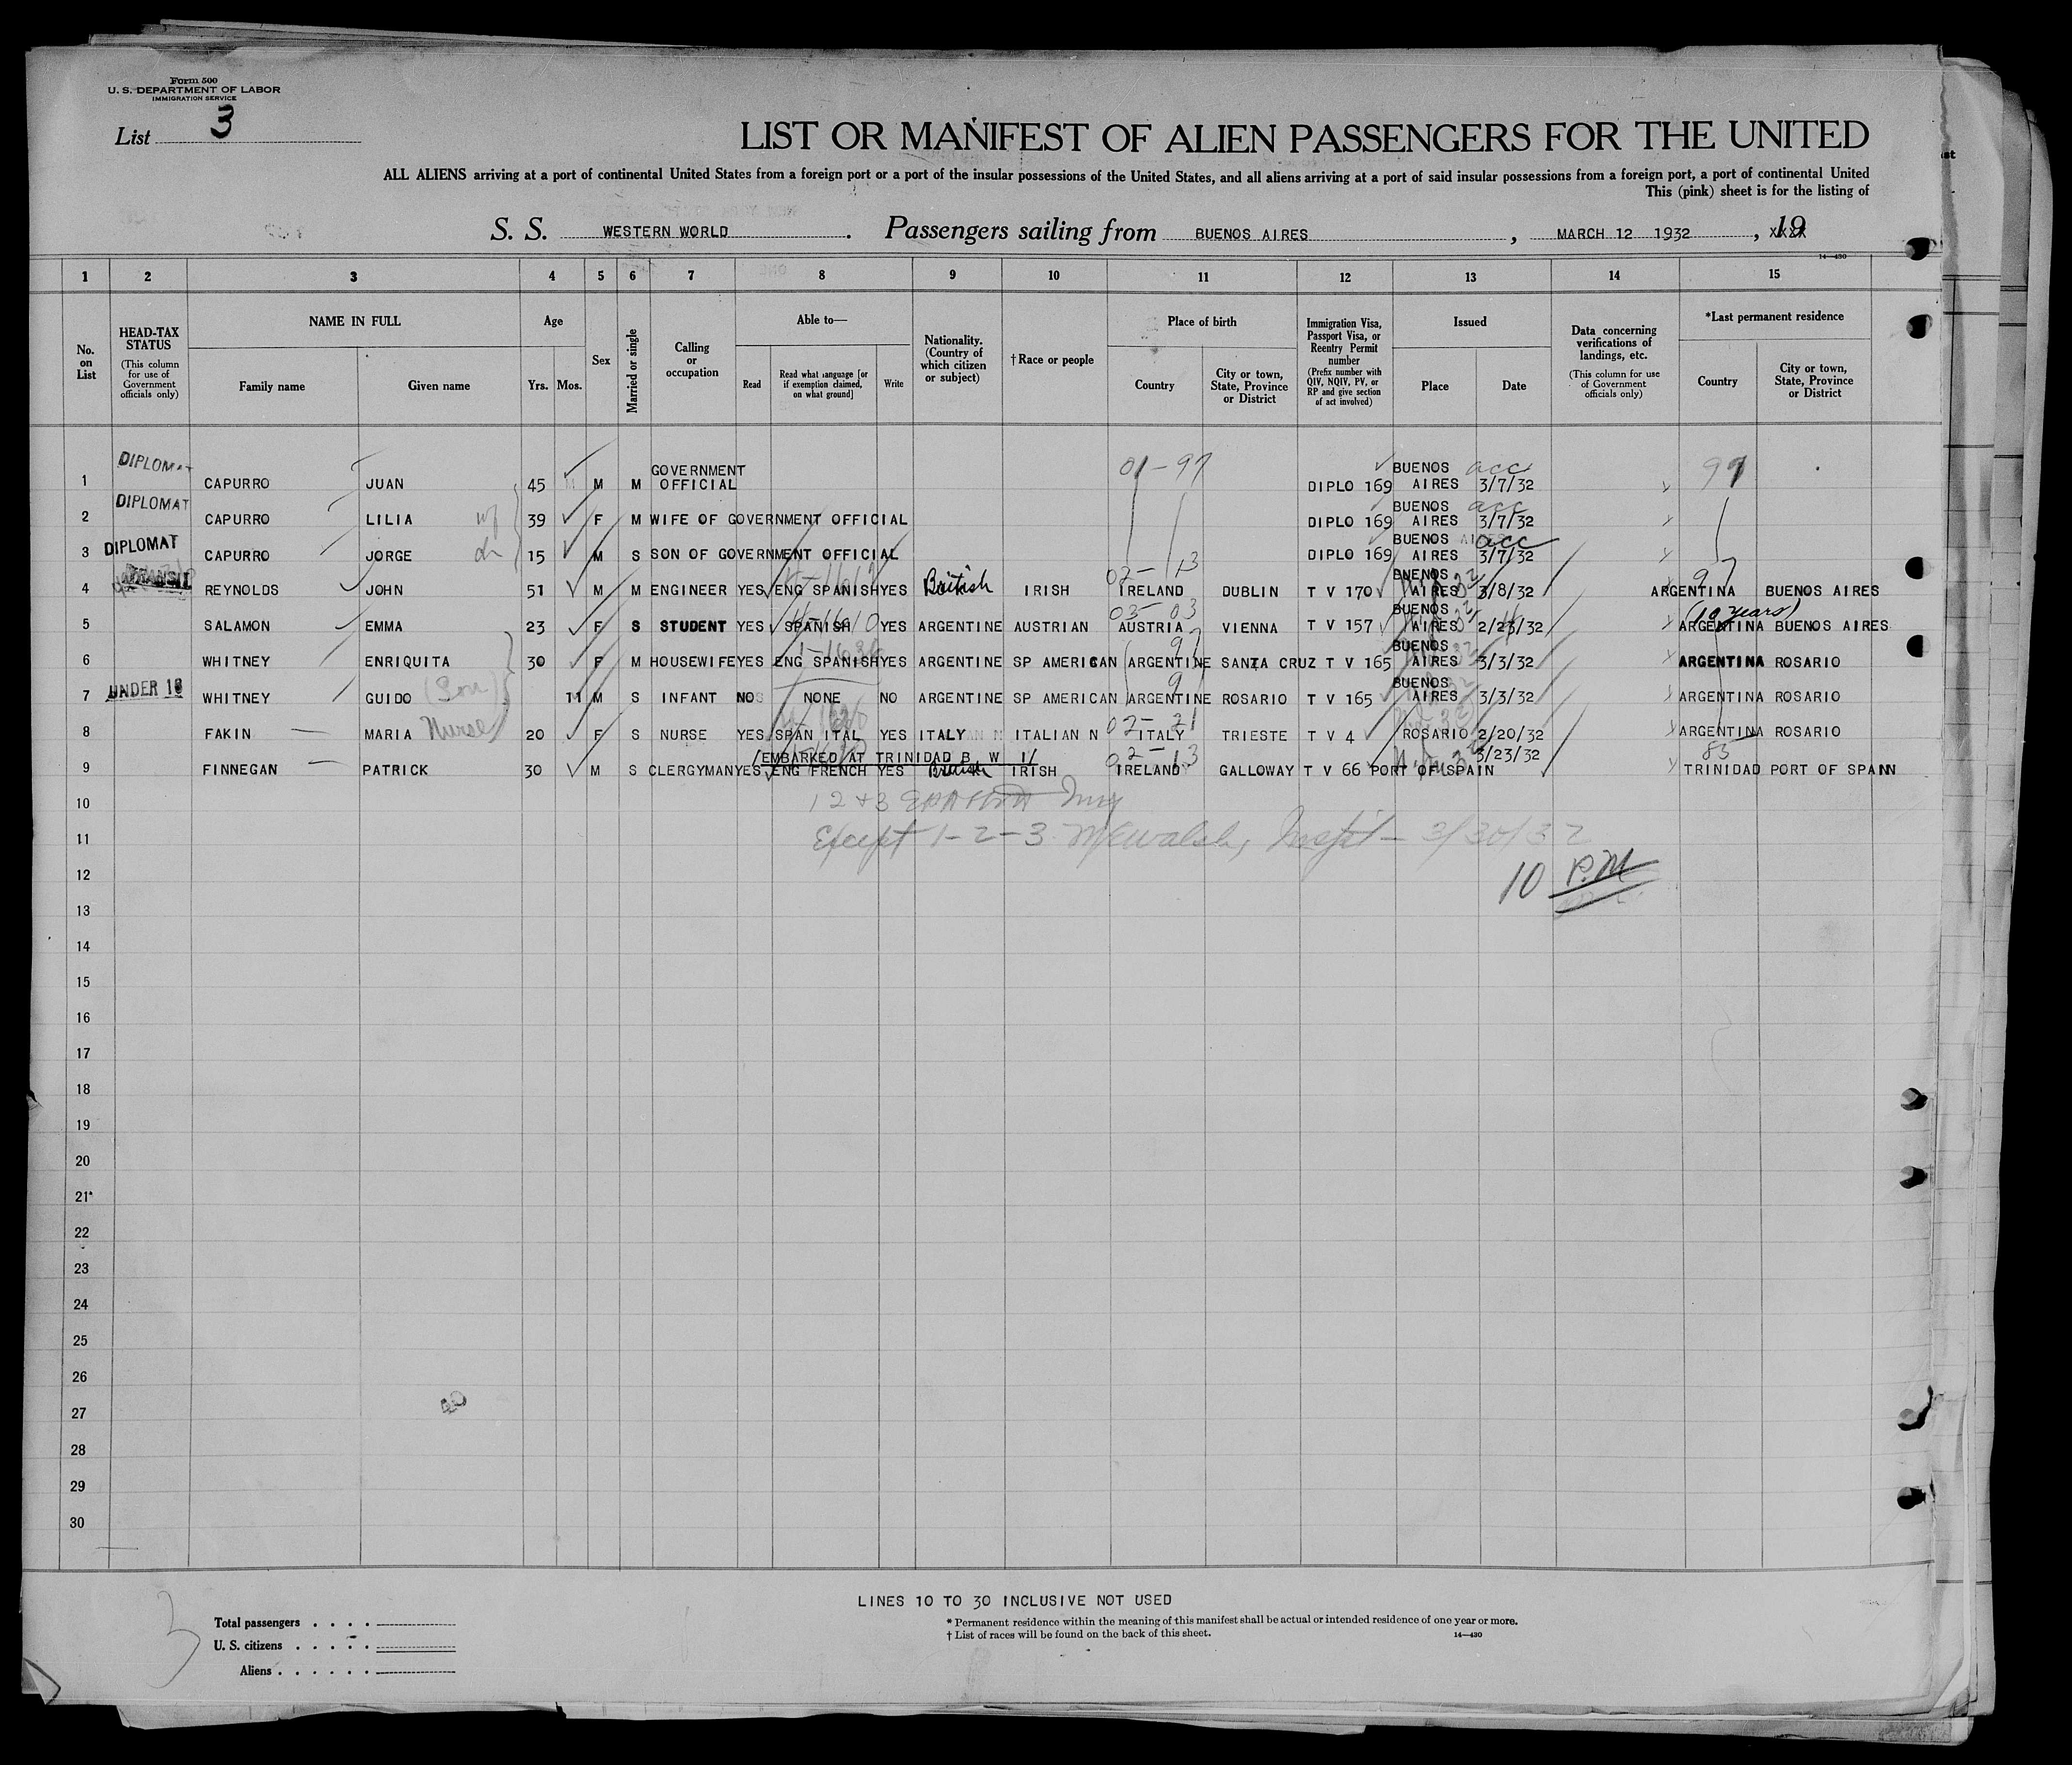 Form 500
U. S. DEPARTMENT OF LABOR
IMMIGRATION SERVICE
List 3
LIST OR MANIFEST OF ALIEN PASSENGERS FOR THE UNITED
ALL ALIENS arriving at a port of continental United States from a foreign port or a port of the insular possessions of the United States, and all aliens arriving at a port of said insular possessions from a foreign port, a port of continental United
This (pink) sheet is for the listing of
S. S. WESTERN WORLD. Passengers sailing from BUENOS AIRES, MARCH 12 1932, 19
14—430
1 2 3 4 5 6 7 8 9 10 11 12 13 14 15
No. on List
HEAD-TAX STATUS (This column for use of Government officials only)
NAME IN FULL
Family name
Given name
Age
Yrs. Mos.
Sex
Married or single
Calling or occupation
Able to—
Read
Read what language [or if exemption claimed, on what ground]
Write
Nationality. (Country of which citizen or subject)
†Race or people
Place of birth
Country
City or town, State, Province or District
Immigration Visa, Passport Visa, or Reentry Permit number (Prefix number with QIV, NQIV, PV, or RP and give section of act involved)
Issued
Place
Date
Data concerning verifications of landings, etc. (This column for use of Government officials only)
*Last permanent residence
Country
City or town, State, Province or District
1 DIPLOMAT CAPURRO JUAN 45 M M GOVERNMENT OFFICIAL 01-97 DIPLO 169 BUENOS AIRES acc 3/7/32 97
2 DIPLOMAT CAPURRO LILIA wf 39 F M WIFE OF GOVERNMENT OFFICIAL DIPLO 169 BUENOS AIRES acc 3/7/32
3 DIPLOMAT CAPURRO JORGE ch 15 M S SON OF GOVERNMENT OFFICIAL DIPLO 169 BUENOS AIRES acc 3/7/32
4 REYNOLDS JOHN 51 M M ENGINEER YES ENG SPANISH YES British IRISH 02-13 IRELAND DUBLIN T V 170 BUENOS AIRES 3/8/32 97 ARGENTINA BUENOS AIRES
5 SALAMON EMMA 23 F S STUDENT YES SPANISH YES ARGENTINE AUSTRIAN 03-03 AUSTRIA VIENNA T V 157 BUENOS AIRES (10 years) ARGENTINA BUENOS AIRES
6 WHITNEY ENRIQUITA 30 F M HOUSEWIFE YES ENG SPANISH YES ARGENTINE SP AMERICAN 97 ARGENTINE SANTA CRUZ T V 165 BUENOS AIRES 3/3/32 ARGENTINA ROSARIO
7 UNDER 16 WHITNEY GUIDO (Son) 11 M S INFANT NO NONE NO ARGENTINE SP AMERICAN ARGENTINE ROSARIO T V 165 BUENOS AIRES 3/3/32 ARGENTINA ROSARIO
8 FAKIN MARIA Nurse 20 F S NURSE YES SPAN ITAL YES ITALY ITALIAN N 02-21 ITALY TRIESTE T V 4 ROSARIO 2/20/32 ARGENTINA ROSARIO
/EMBARKED AT TRINIDAD B W I/
9 FINNEGAN PATRICK 30 M S CLERGYMAN YES ENG FRENCH YES British IRISH 02-13 IRELAND GALLOWAY T V 66 PORT OF SPAIN 3/23/32 85 TRINIDAD PORT OF SPAIN
10 1 2 + 3
11 Except 1-2-3 3/30/32
12 10 P.M
13
14
15
16
17
18
19
20
21
22
23
24
25
26
27
28
29
30
LINES 10 TO 30 INCLUSIVE NOT USED
3
Total passengers . . . .
U. S. citizens . . . . .
Aliens . . . . . .
* Permanent residence within the meaning of this manifest shall be actual or intended residence of one year or more.
† List of races will be found on the back of this sheet.
14—430